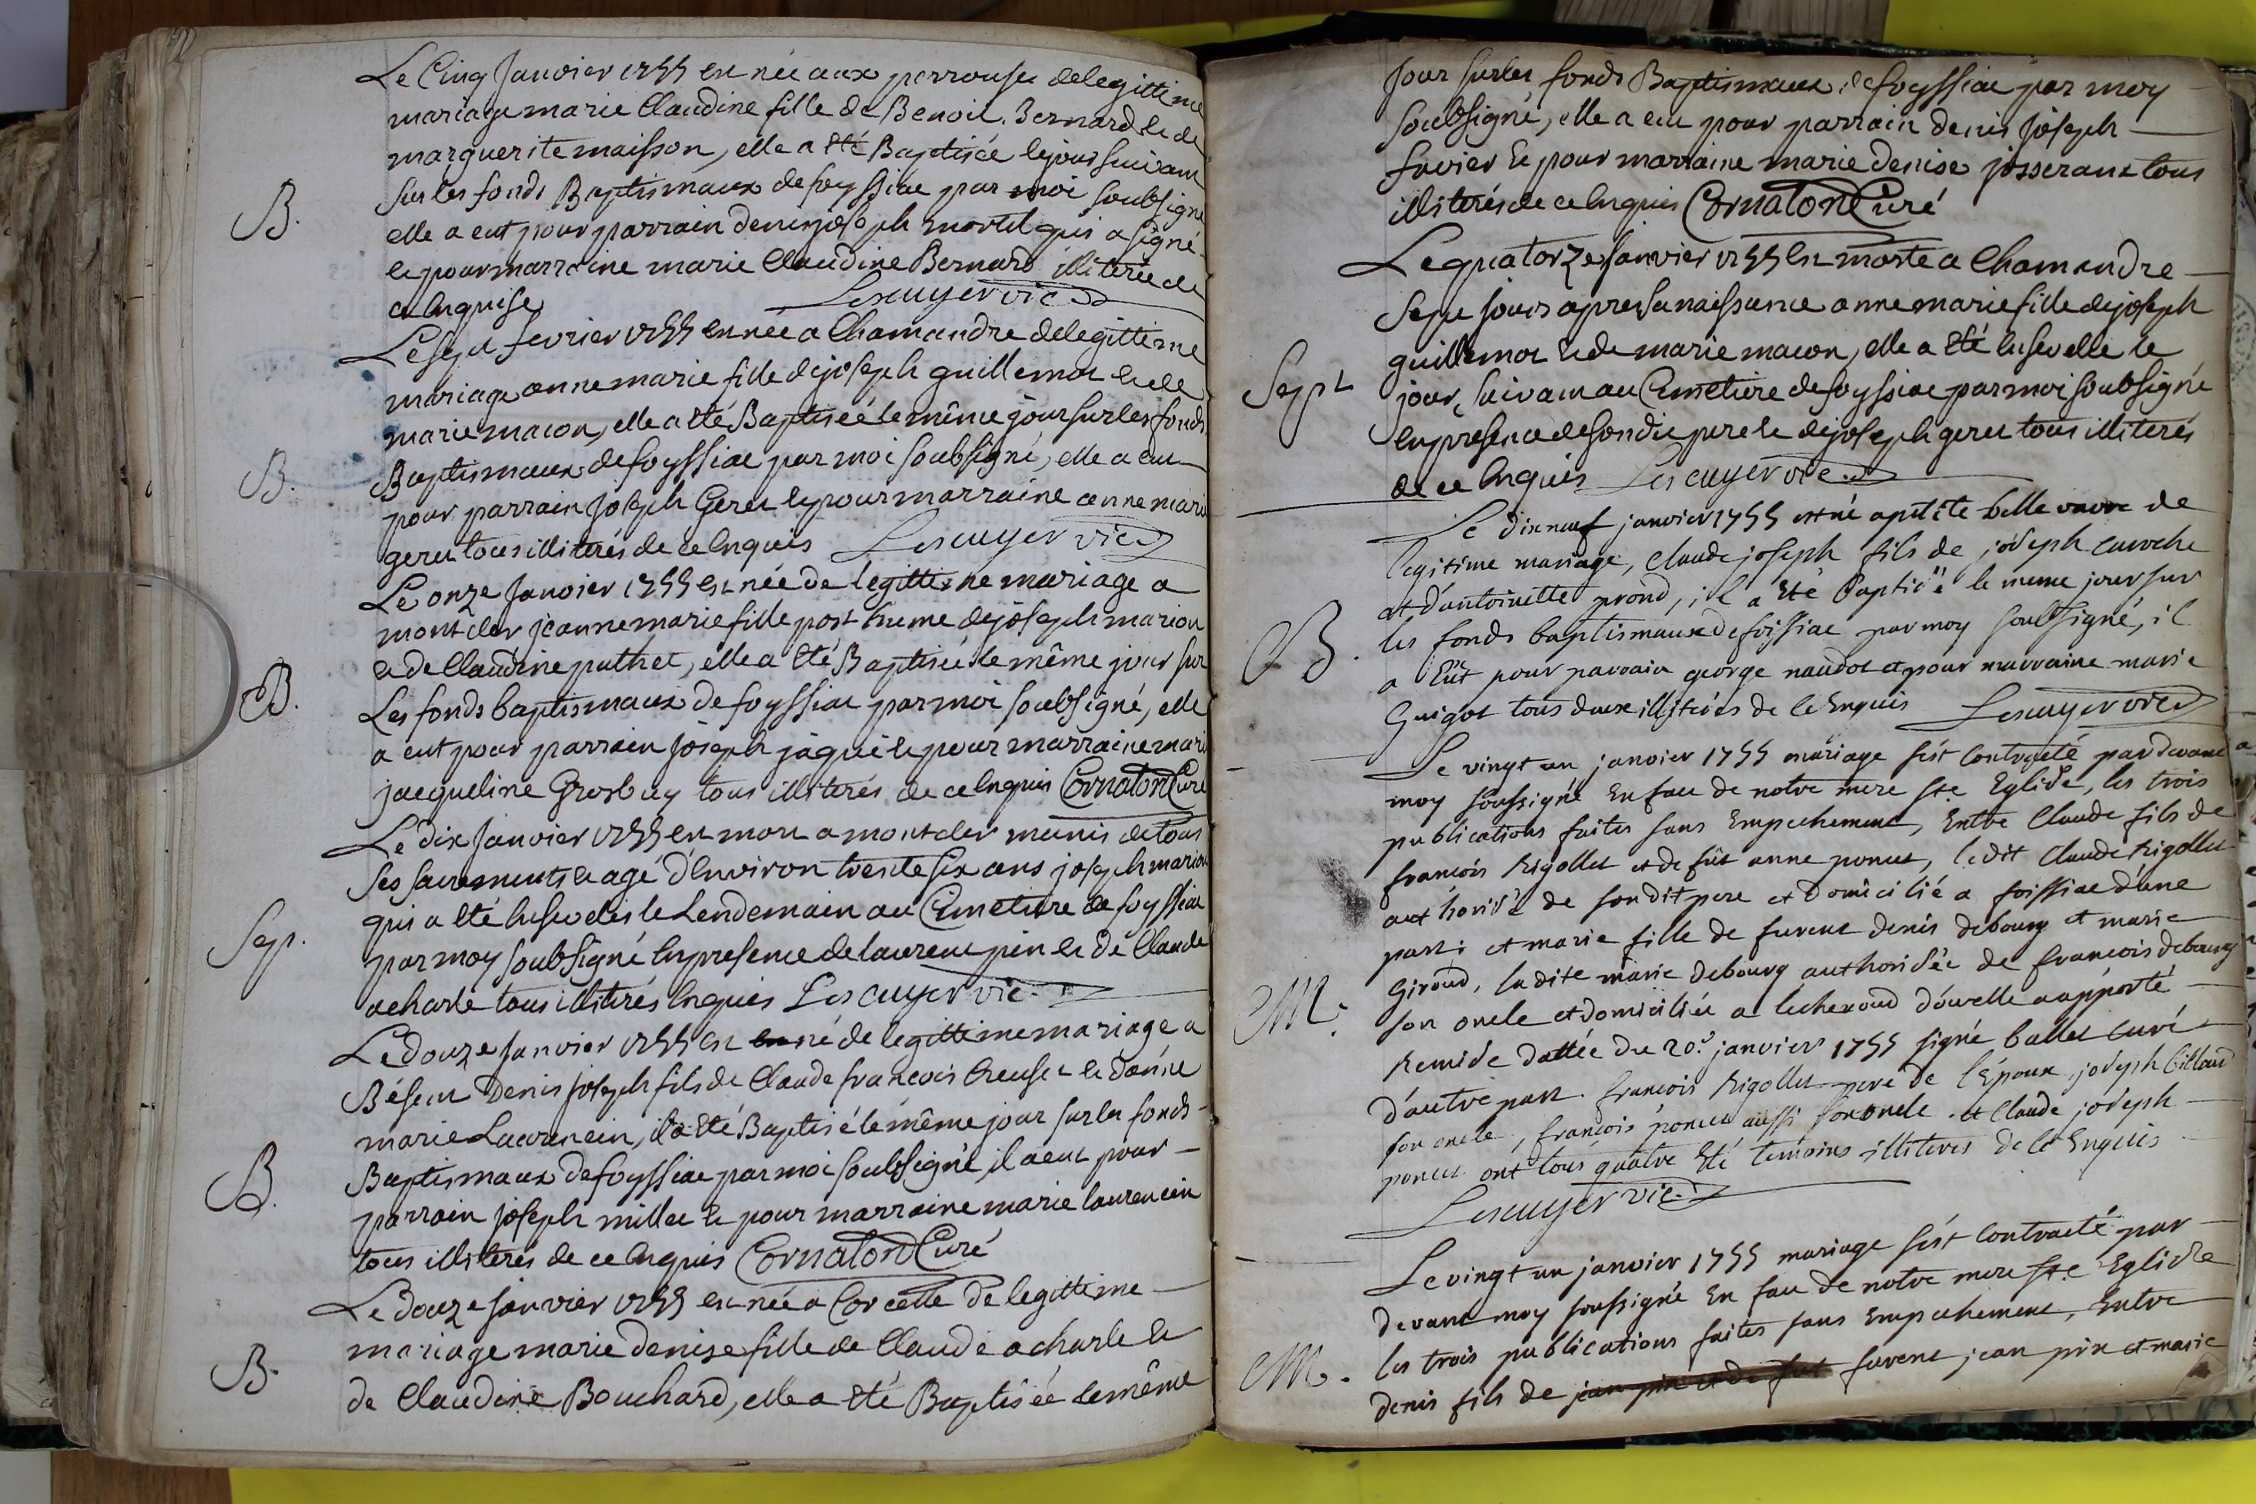 Le Cinq Janvier 1755 est née aux perrouses de legittime
mariage marie Claudine fille de Benoit Bernard et de
marguerite maisson, elle a eté Baptisée le jour suivant
sur les fonds Baptismaux de foyssiat par moi soubsigné
B.
elle a eut pour parrain denis joseph mortel qui a signé
et pour marraine marie Claudine Bernard illiterée de
ce Enquise Lescuyer vic.
Le sept fevrier 1755 est née a Chamandre de legittime
mariage anne marie fille de joseph guillemot et de
marie macon, elle a eté Baptiseé le même jour sur les fonds
B.
Baptismaux de foyssiat par moi soubsigné, elle a eut
pour parrain joseph Geret et pour marraine anne marie
geret tous illiterés de ce Enquis Lescuyer vic.
Le onze Janvier 1755 est née de legittime mariage a
montcler jeanne marie fille posthume de joseph marion
et de Claudine puthet, elle a eté Baptisée le même jour sur
B.
Les fonds baptismaux de foyssiat par moi soubsigné, elle
a eut pour parrain joseph jaquet et pour marraine marie
jacqueline Grosbuy tous illiterés de ce Enquis Cornaton Curé
Le dix Janvier 1755 est mort a montcler munis de tous
ses sacrements et agé d'Environ trente six ans joseph marion
qui a eté Ensevelis le Lendemain au Cimetiere de foyssiat
Sep.
par moy soubsigné En presence de laurent pin et de Claude
acharle tous illiterés Enquis Lescuyer vic.
Le douze Janvier 1755 est né de legittime mariage a
Béseut Denis joseph fils de Claude francois Creuset et danne
marie Laurencin, il a eté Baptisé le même jour sur les fonds
B.
Baptismaux de foyssiat par moi soubsigné, il a eut pour
parrain joseph millet et pour marraine marie laurencin
tous illiterés de ce Enquis Cornaton Curé
Le douze janvier 1755 est née a Corcelle de legittime
mariage marie denise fille de Claude acharle et
B.
de Claudine Bouchard, elle a eté Baptisée le même
Jour sur les fonds Baptismaux de foyssiat par moy
soubsigné, elle a eut pour parrain denis joseph
favier et pour marraine marie denise josserant tous
illiterés de ce Enquis Cornaton Curé
Le quatorze janvier 1755 est morte a Chamandre
Sept jours apres sa naissance anne marie fille de joseph
guillemot et de marie macon, elle a eté Ensevelie le
Sept
jour suivant au Cimetiere de foyssiat par moi soubsigné
En presence de son dit pere et de joseph geret tous illiterés
de ce Enquis Lescuyer vic.
Le dix neuf janvier 1755 est né a petite belle vavre de
legitime mariage, Claude joseph fils de joseph Curoche
et d'antoinette prond, il a eté Baptisé le meme jour sur
B.
les fonds baptismaux de foissiat par moy soubsigné, il
a Eüt pour parrain george naudot et pour marraine marie
Guigot tous deux illiterés de ce Enquis Lescuyer vic
Le vingt un janvier 1755 mariage s'est Contracté pardevant
moy soussigné En face de notre mere Ste Eglise, les trois
publications faites sans Empechement, Entre Claude fils de
francois Rigollet et de füt anne poncet, le dit Claude Rigollet
authorisé de son dit pere et domicilié a foissiat d'une
part; et marie fille de furent denis debourg et marie
Giroud, la dite marie debourg authorisée de francois debourg
M.
son oncle et domiciliée a lecheroud d'ou elle a apporté
Remise dattée du 20e janvier 1755 signé ballet curé
d'autre part. francois Rigollet pere de l'Epoux, joseph billoud
son oncle, francois poncet aussi son oncle et Claude joseph
poncet ont tous quatre Eté temoins illiteres de ce Enquis
Lescuyer vic.
Le vingt un janvier 1755 mariage s'est Contracté par
devant moy soussigné En face de notre mere Ste Eglise
les trois publications faites sans Empechement, Entre
M.
denis fils de furent jean pin et marie